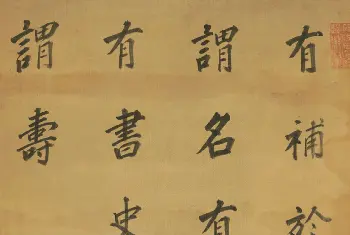 有補於
謂名有
有書史
謂壽